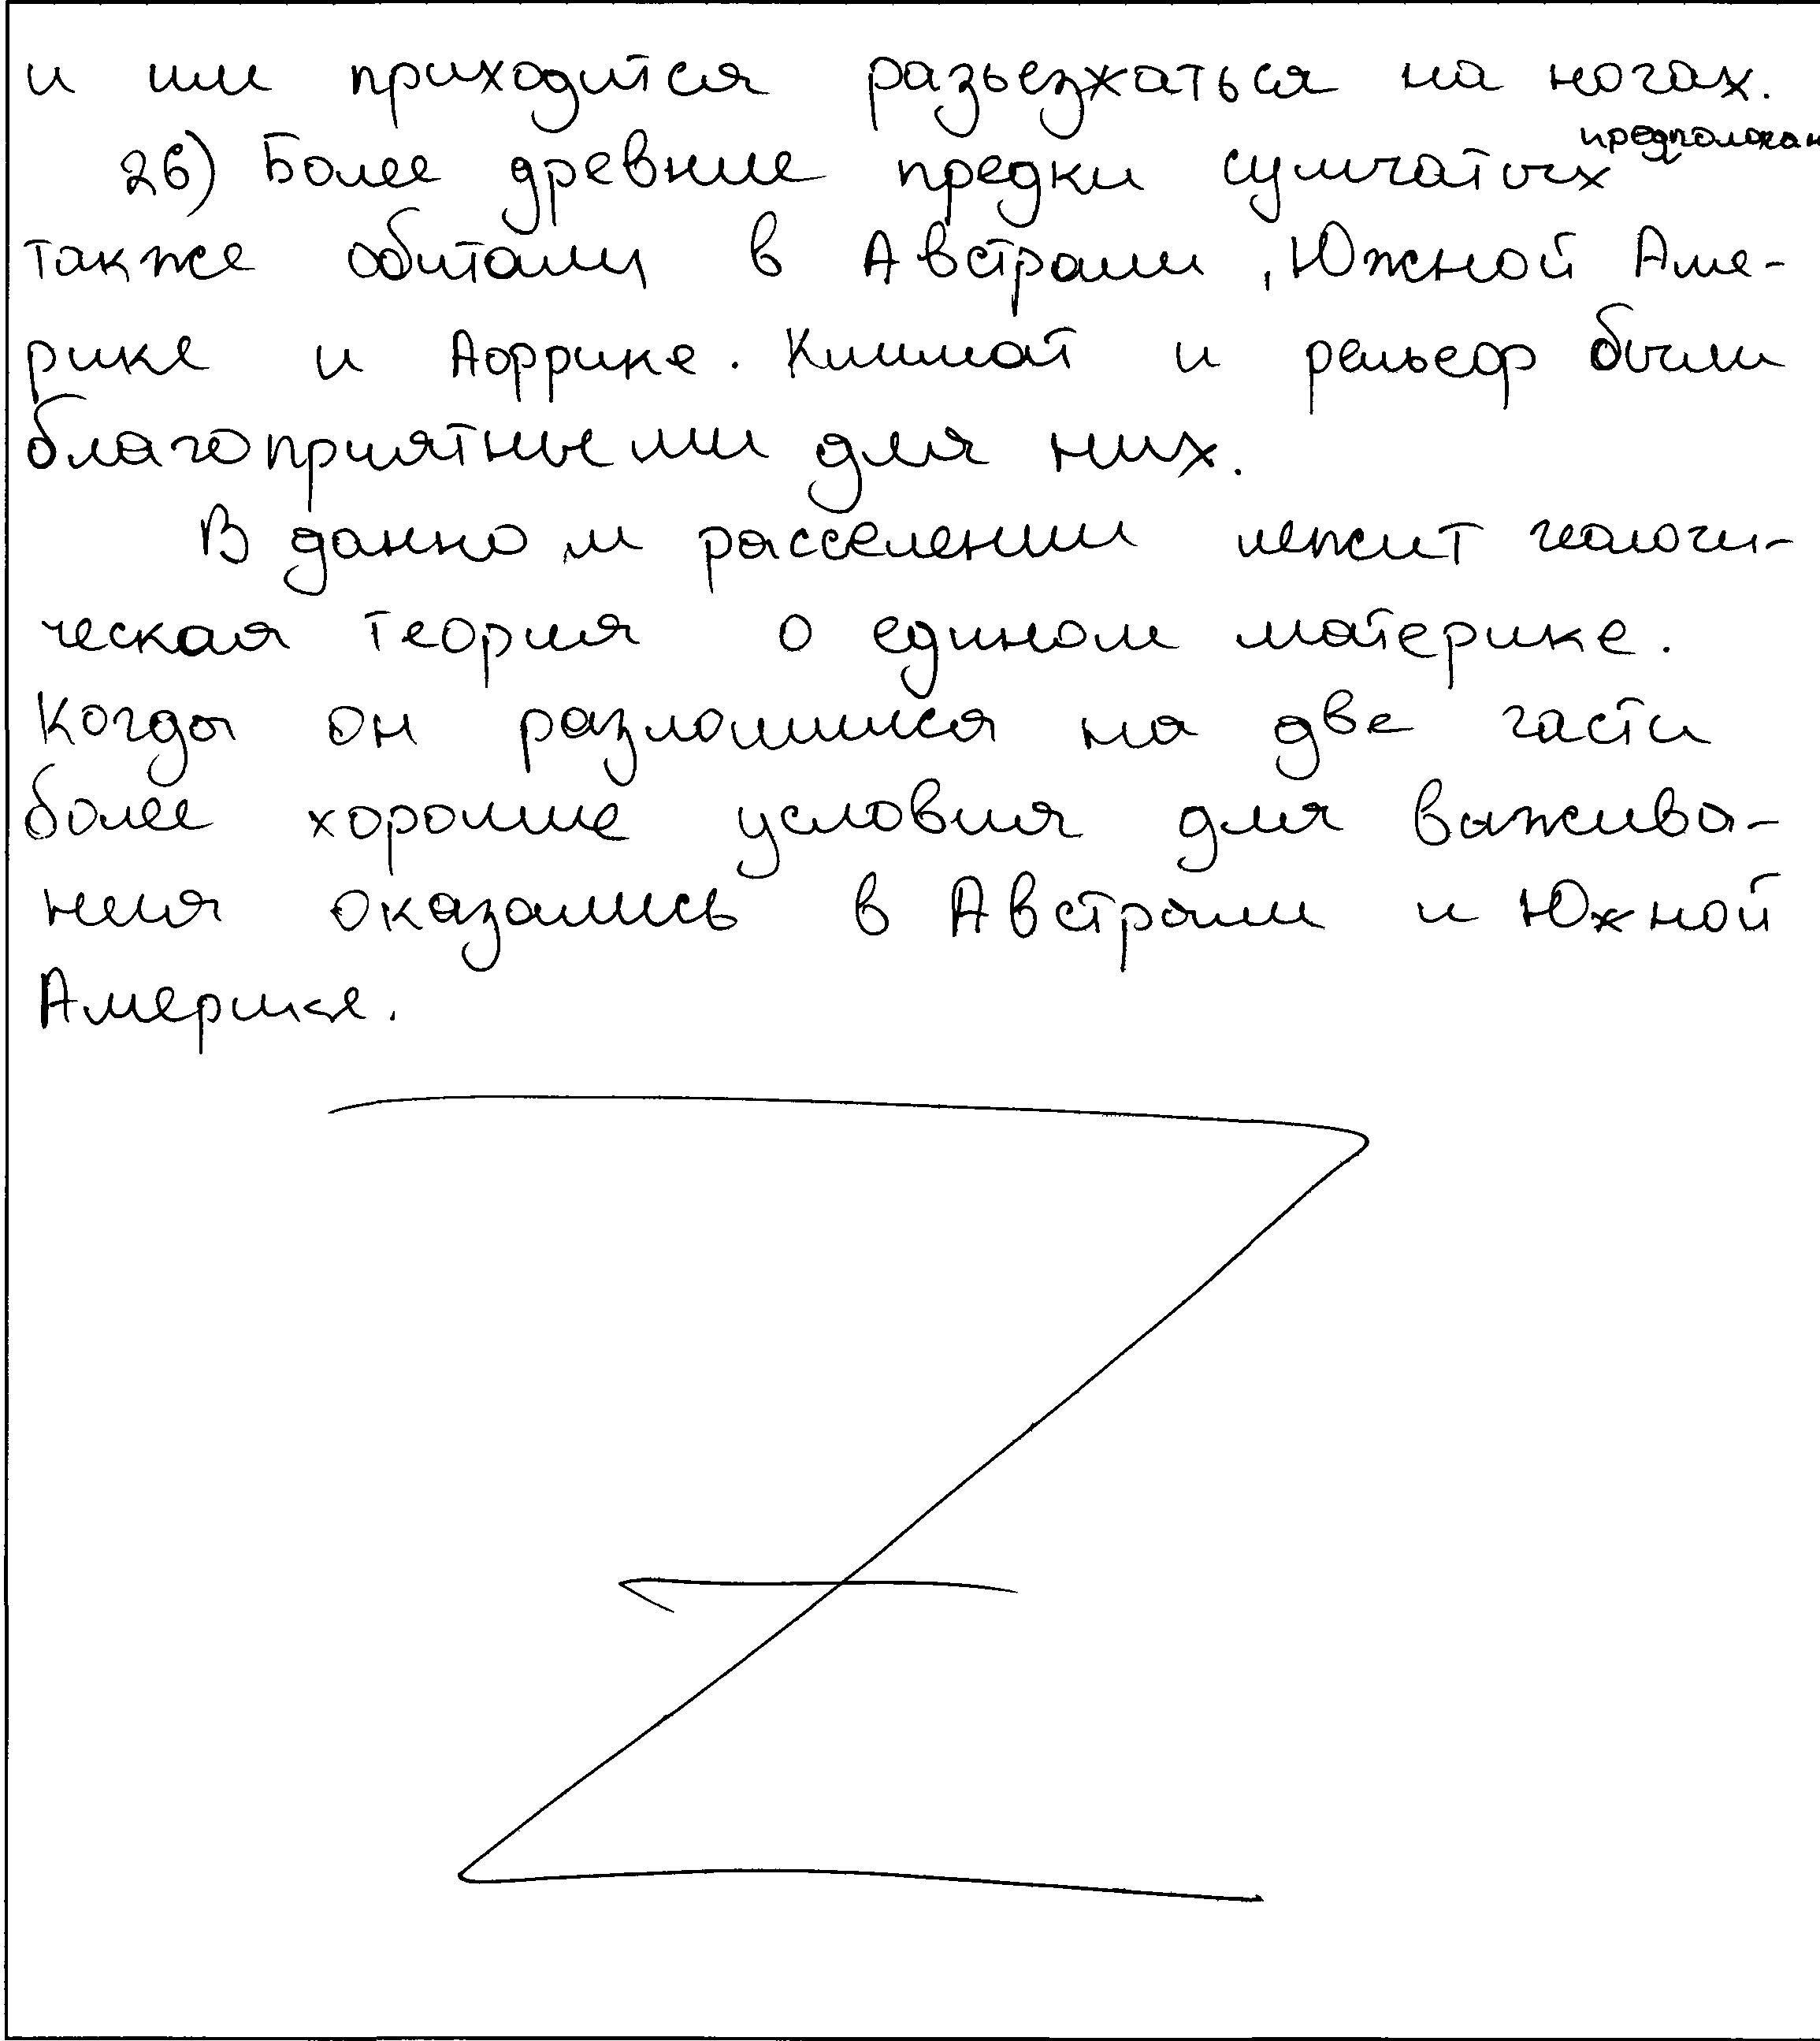 и им приходится разьезжаться на ногах.
26) Более древние предки сумчатых
также обитали в Австрали, Южной Аме-
рике и Африке. Климат и рельеф были
благоприятными для них.
В данном расселении лежит геологи-
ческая теория о едином материке.
Когда он разломился на две части
более хорошие условия для выжива-
ния оказались в Австрали и Южной
Америке.